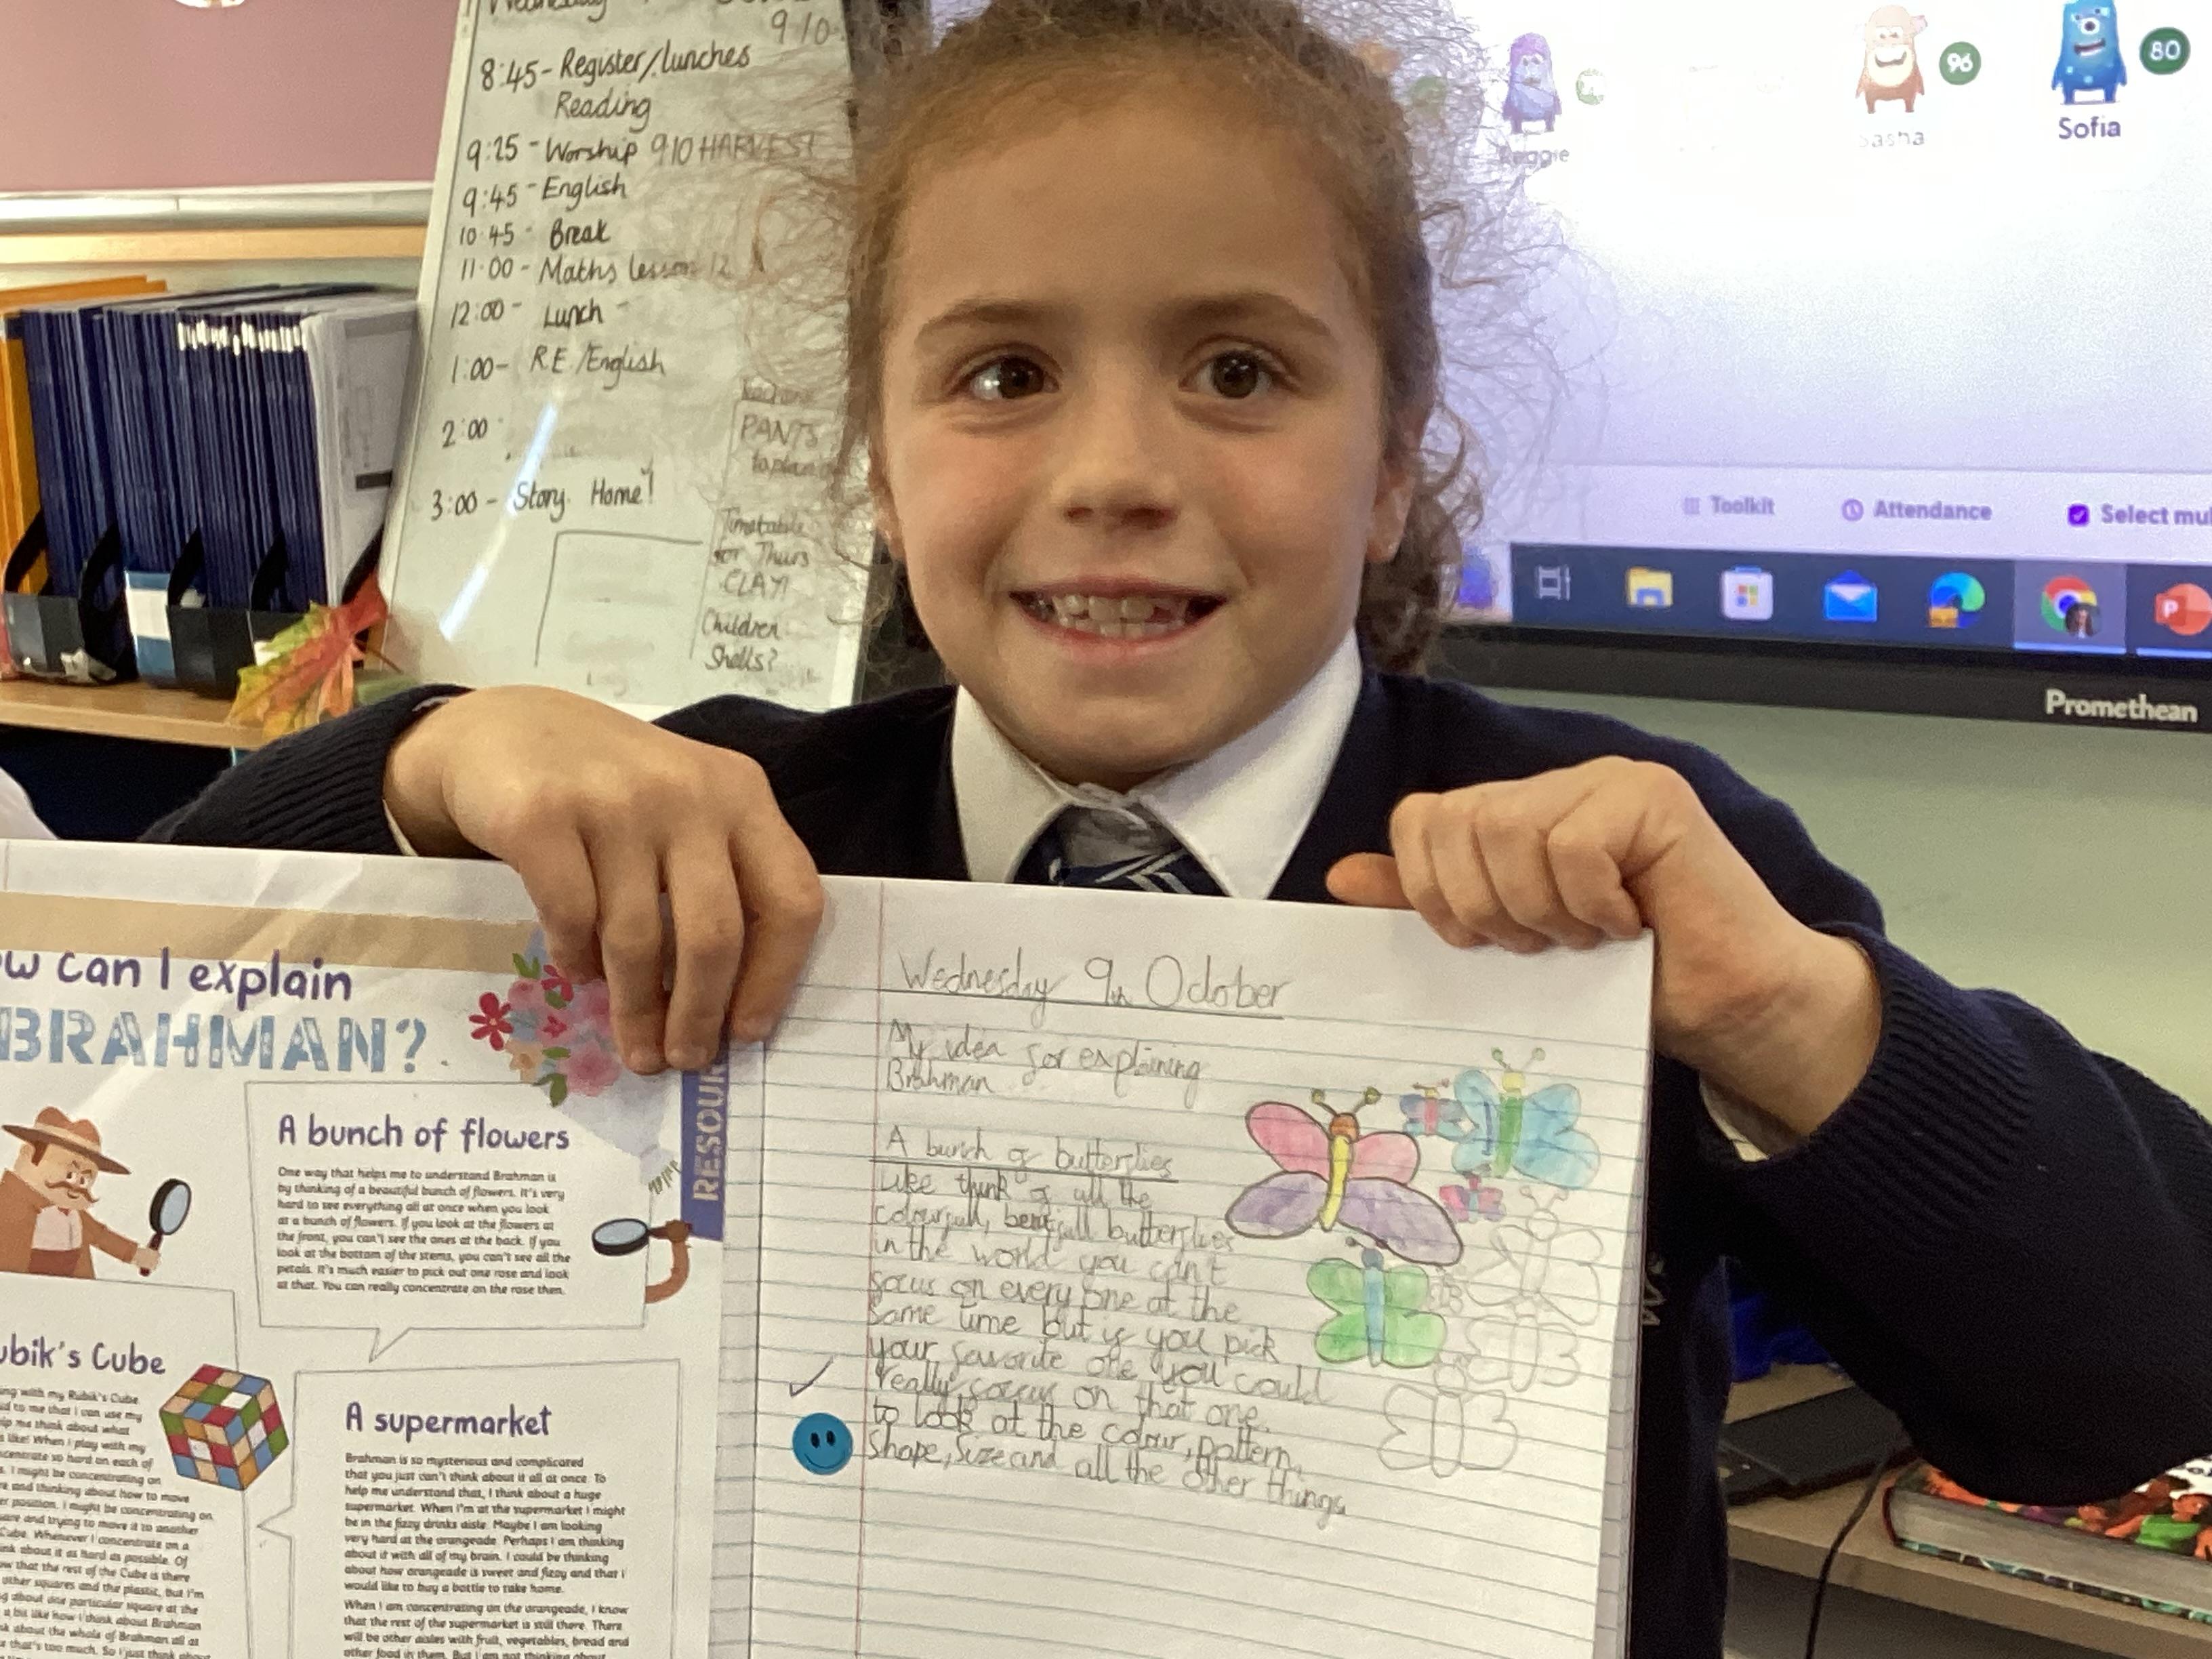 Wednesday
9/10
8:45 - Register/lunches
Reading
9:25 - Worship 9:10 HARVEST
9:45 - English
10:45 - Break
11:00 - Maths lesson 12
12:00 - Lunch -
1:00 - R.E./English
2:00
3:00 - Story. Home!
PANTS
Timetable
for Thurs
CLAY!
Children
Shells?
Reggie
Sasha
96
Sofia
80
Toolkit
Attendance
Select mul
Promethean
ow can I explain
BRAHMAN?
A bunch of flowers
One way that helps me to understand Brahman is
by thinking of a beautiful bunch of flowers. It's very
hard to see everything all at once when you look
at a bunch of flowers. If you look at the flowers at
the front, you can't see the ones at the back. If you
look at the bottom of the stems, you can't see all the
petals. It's much easier to pick out one rose and look
at that. You can really concentrate on the rose then.
RESOUR
ubik's Cube
ing with my Rubik's Cube.
id to me that I can use my
lp me think about what
s like! When I play with my
ncentrate so hard on each of
s. I might be concentrating on
re and thinking about how to move
er position. I might be concentrating on
uare and trying to move it to another
Cube. Whenever I concentrate on a
ink about it as hard as possible. Of
ow that the rest of the Cube is there
other squares and the plastic, but I'm
g about one particular square at the
a bit like how I think about Brahman
nk about the whole of Brahman all at
e that's too much. So I just think about
A supermarket
Brahman is so mysterious and complicated
that you just can't think about it all at once. To
help me understand that, I think about a huge
supermarket. When I'm at the supermarket I might
be in the fizzy drinks aisle. Maybe I am looking
very hard at the orangeade. Perhaps I am thinking
about it with all of my brain. I could be thinking
about how orangeade is sweet and fizzy and that I
would like to buy a bottle to take home.
When I am concentrating on the orangeade, I know
that the rest of the supermarket is still there. There
will be other aisles with fruit, vegetables, bread and
other food in them. But I am not thinking about
Wednesday 9th October
My idea for explaining
Brahman
A bunch of butterflies
Like think of all the
colourfull, beutifull butterflies
in the world you can't
focus on every one at the
same time but if you pick
your favorite one you could
really foccus on that one.
to look at the colour, pattern,
Shape, Size and all the other things